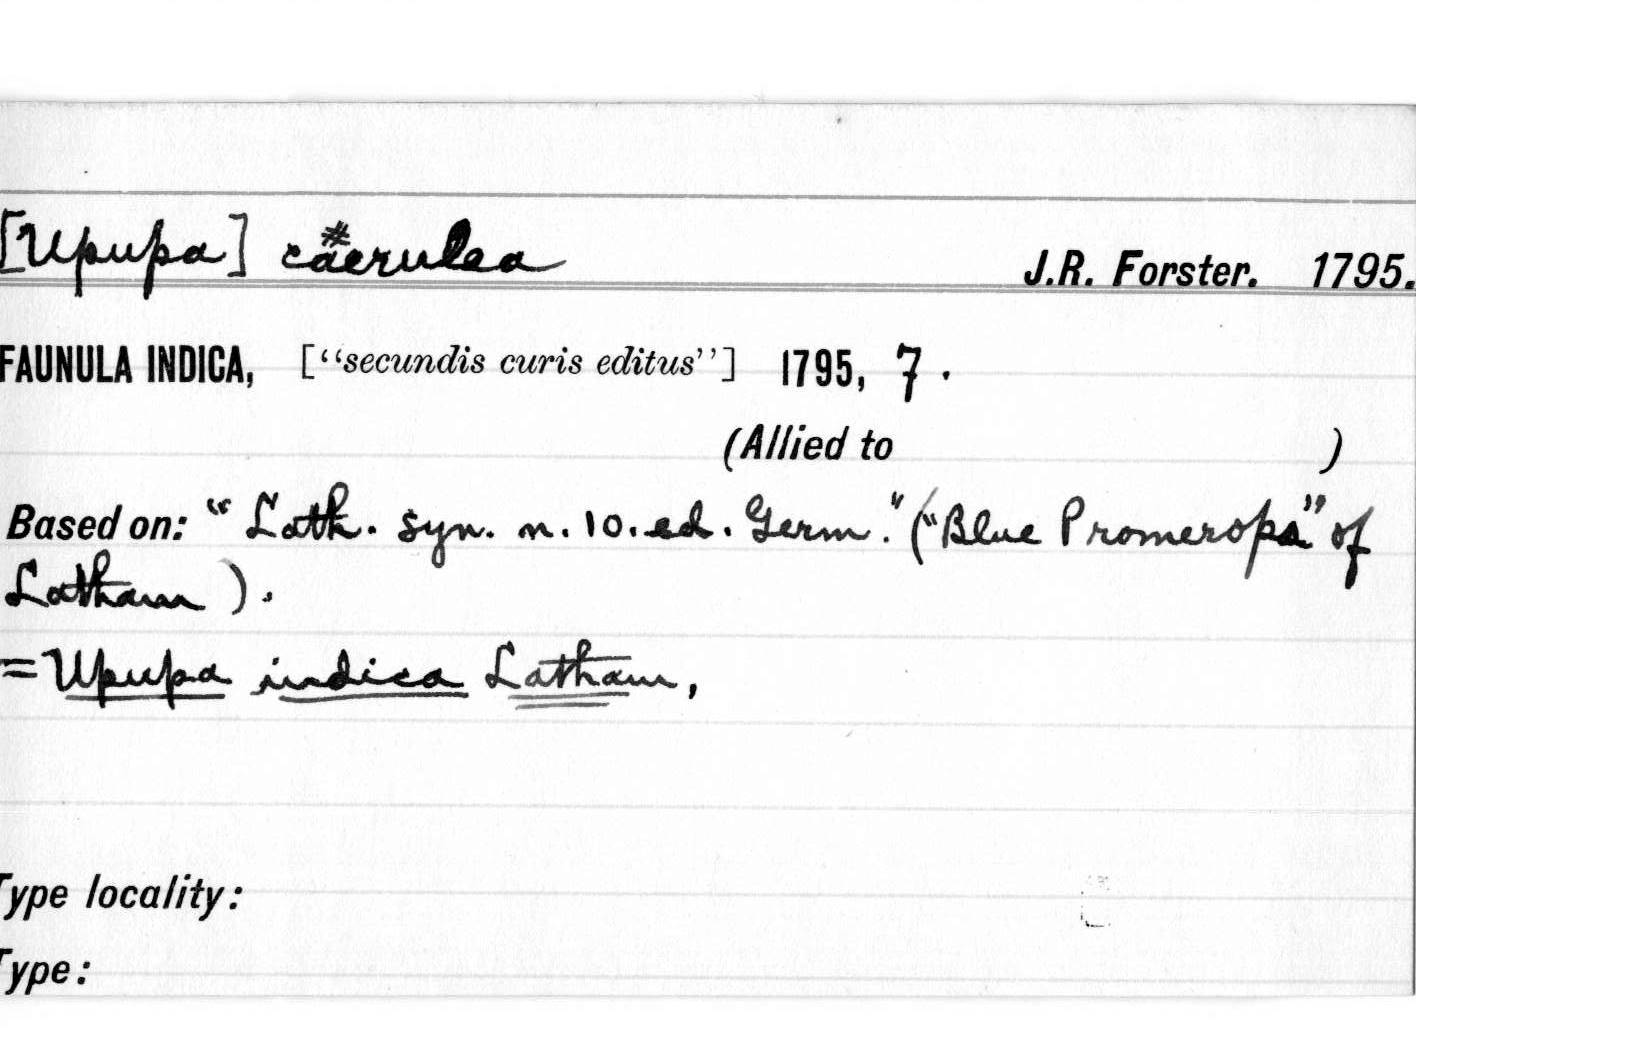 [Upupa] caerulea J.R. Forster. 1795.
FAUNULA INDICA, [“secundis curis editus”] 1795, 7.
(Allied to )
Based on: “Lath. syn. n. 10. ed. Germ.” (“Blue Promerops” of
Latham).
= Upupa indica Latham,
Type locality:
Type: